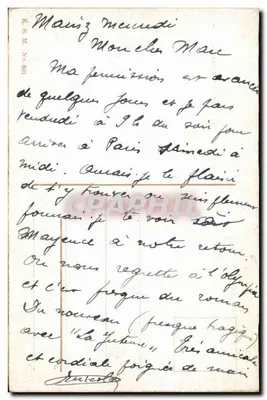 Mainz mercredi
Mon cher Marc
Ma permission est avancée
de quelques jours et je pars
vendredi à 9 h du soir pour
arriver à Paris samedi à
midi. Aurais je le plaisir
de t'y trouver ou
pourrais je te voir
Mayence à notre retour.
On nous regrette à l'olympia
et c'est presque du roman
Du nouveau (presque tragique)
avec "La Jeteuse" Très amicale
et cordiale poignée de main
E. S. M. No. 801